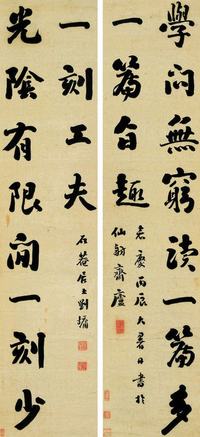 學問無窮讀一篇多
一篇旨趣
嘉慶丙辰大暑日書於
仙舫齋廬
光陰有限閒一刻少
一刻工夫
石菴居士劉墉